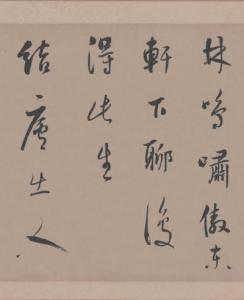 林鳴嘯傲東
軒下聊復
得此生
結廬在人